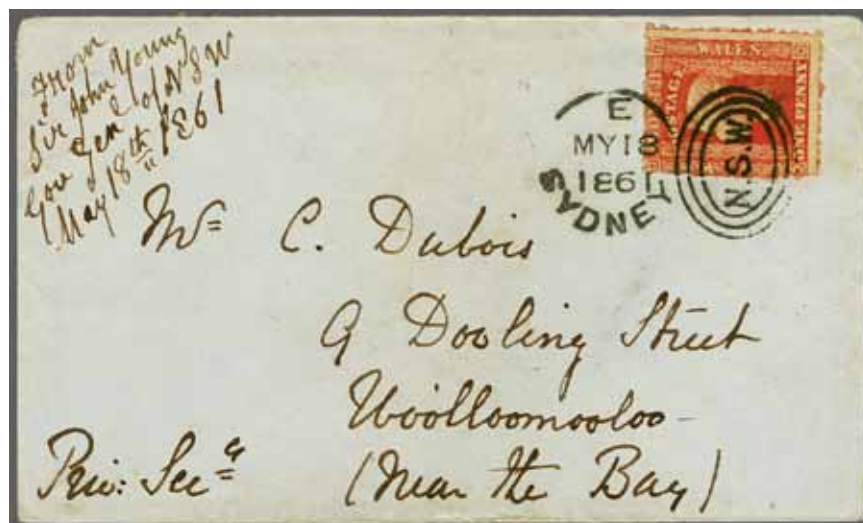 From
Sir John Young
Gov Genl of N S W
May 18th 1861
SOUTH
WALES.
POSTAGE.
ONE PENNY
E
MY 18
1861
SYDNEY
N.S.W.
Mr C. Dubois
9 Dowling Street
Woolloomooloo
(Near the Bay)
Priv: Secy